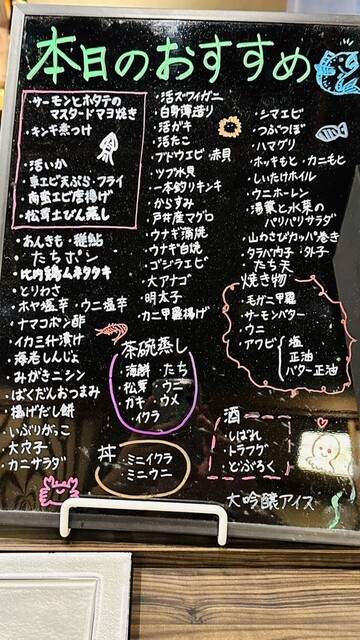 本日のおすすめ
・サーモンとホタテの
マスタードマヨ焼き
・キンキ煮つけ
・活いか
・車エビ天ぷら・フライ
・南蛮エビ唐揚げ
・松茸土びん蒸し
・あんきも・鮭鮨
・たちポン
・比内鶏ムネタタキ
・とりわさ
・ホヤ塩辛・ウニ塩辛
・ナマコポン酢
・イカ三升漬け
・海老しんじょ
・みがきニシン
・ばくだんおつまみ
・揚げだし餅
・いぶりがっこ
・大穴子
・カニサラダ
・活ズワイガニ
・白身薄造り
・活ガキ
・活たこ
・ブドウエビ・赤貝
・ツブ水貝
・一本釣りキンキ
・からすみ
・戸井産マグロ
・ウナギ蒲焼
・ウナギ白焼
・ゴジラエビ
・大アナゴ
・明太子
・カニ甲羅揚げ
茶碗蒸し
・海鮮・たち
・松茸・ウニ
・カキ・ウメ
・イクラ
丼
・ミニイクラ
・ミニウニ
・シマエビ
・つぶつぼ
・ハマグリ
・ホッキもと・カニもと
・しいたけホイル
・ウニホーレン
・湯葉と水菜の
パリパリサラダ
・山わさびカッパ巻き
・タラバ内子・外子
・たち天
焼き物
・毛ガニ甲羅
・サーモンバター
・ウニ
・アワビ
塩
正油
バター正油
酒
・しばれ
・トラフグ
・どぶろく
大吟醸アイス